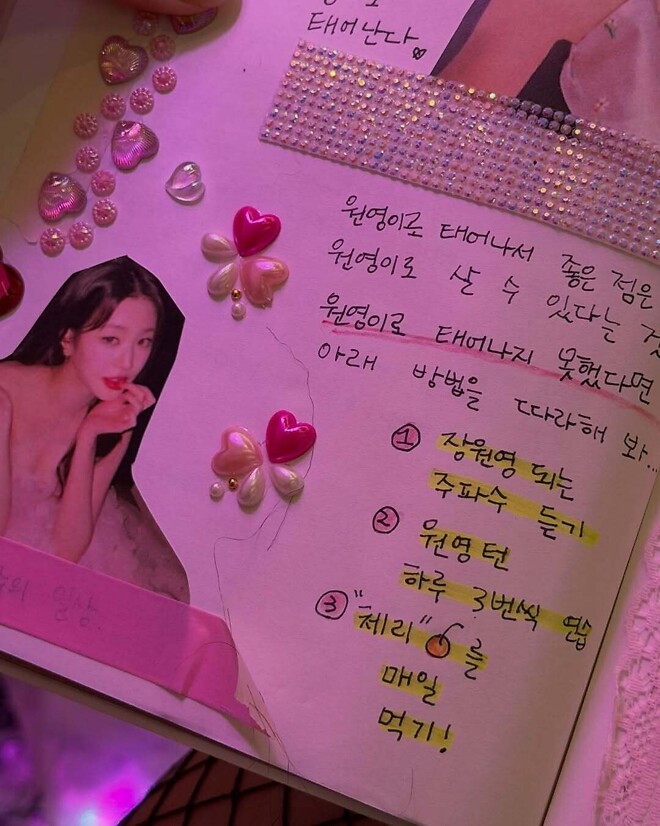 태어난다
원영이로 태어나서 좋은 점은
원영이로 살 수 있다는
원영이로 태어나지 못했다면
아래 방법을 따라해 봐...
① 장원영 되는
주파수 듣기
② 원영턴
하루 3번씩 연습
③ "체리"를
매일
먹기!
일상